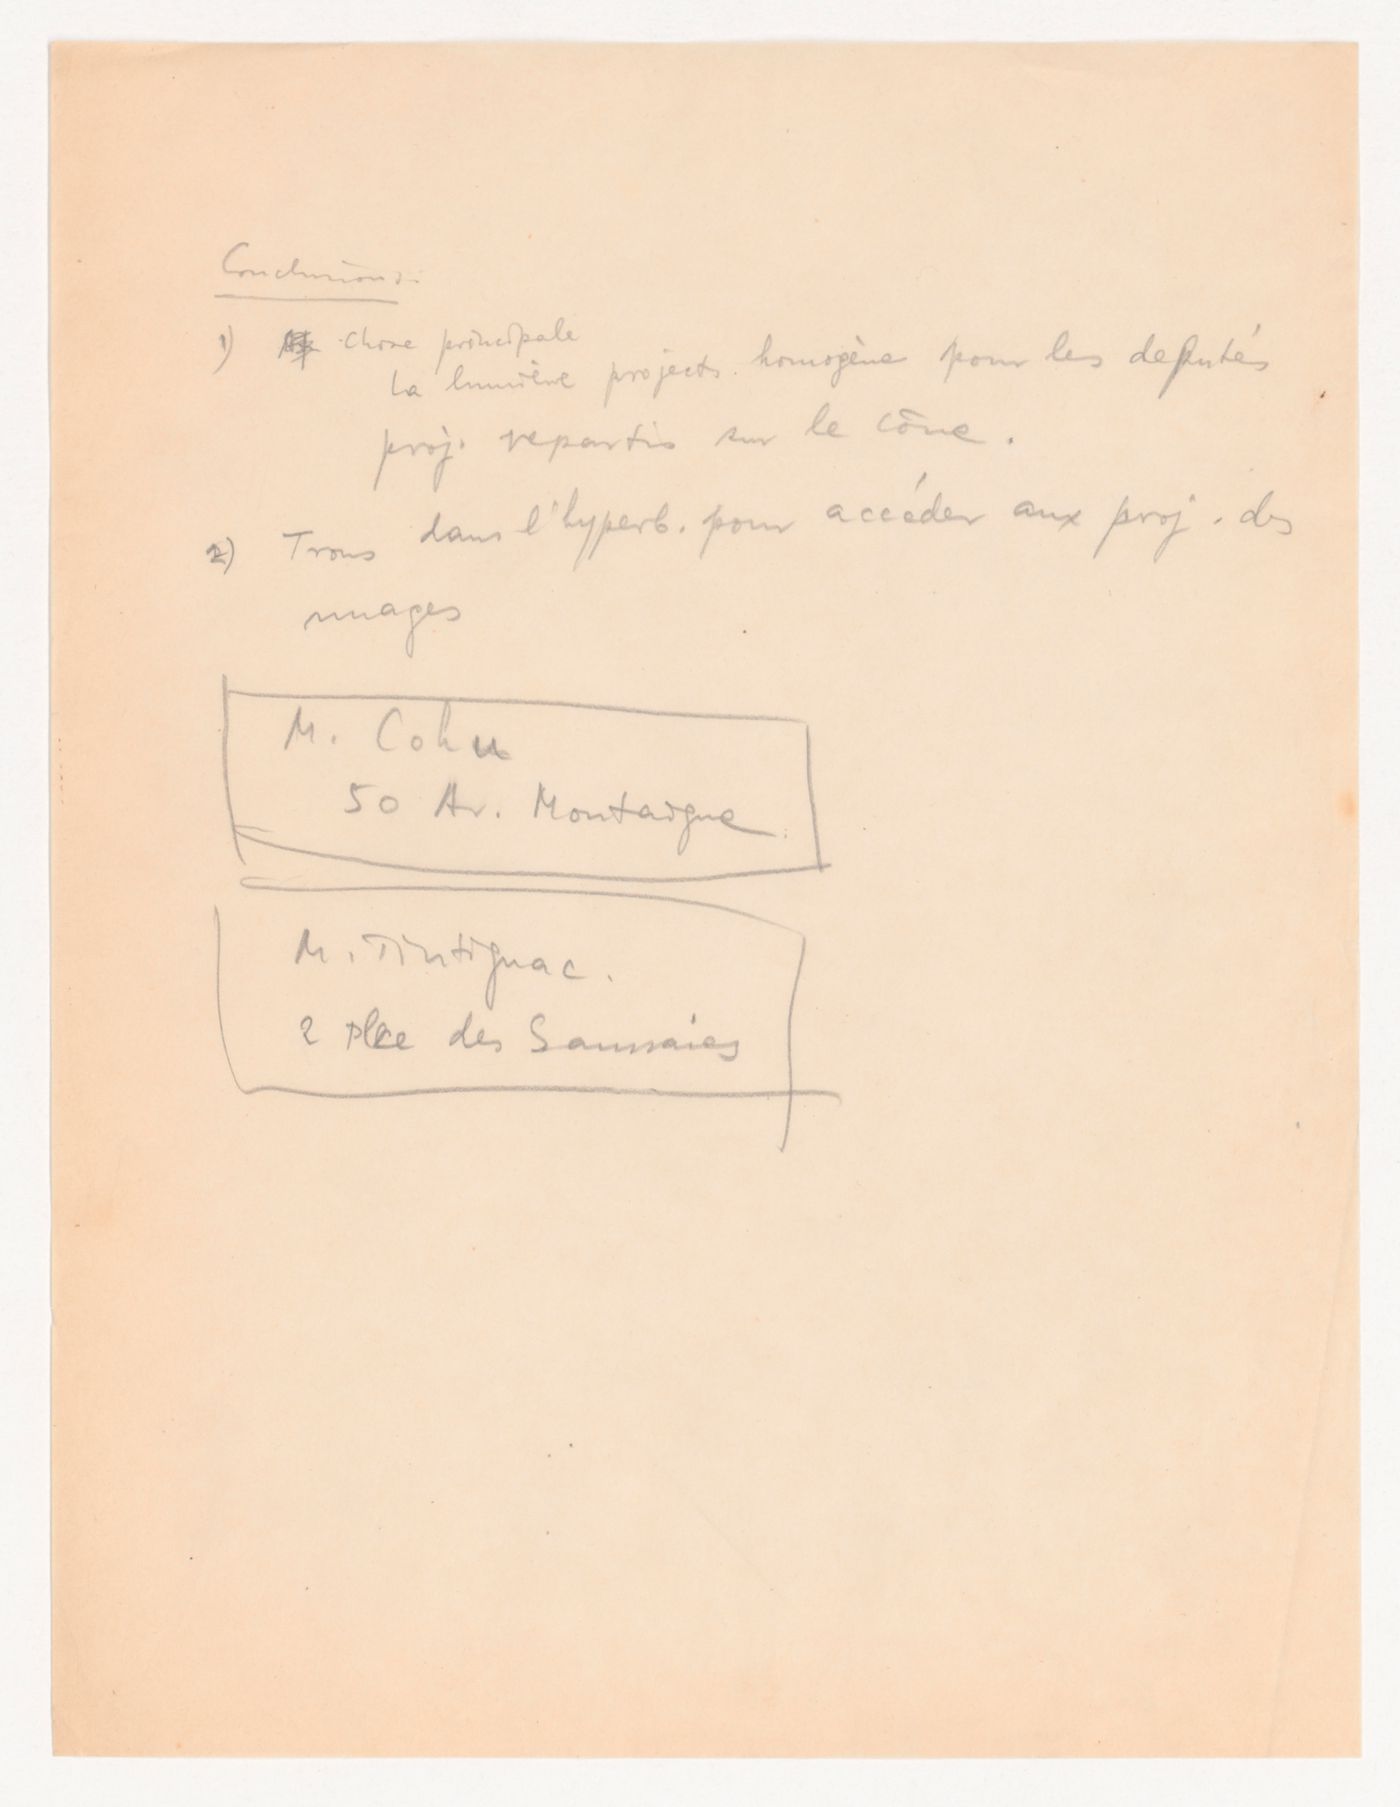 Conclusions:
1) Chose principale
La lumière projects. homogène pour les deputés
proj. repartis sur le cône.
2) Trous dans l'hyperb. pour accéder aux proj. des
nuages
M. Cohu
50 Av. Montaigne.
M. Tintignac.
2 Place des Saussaies